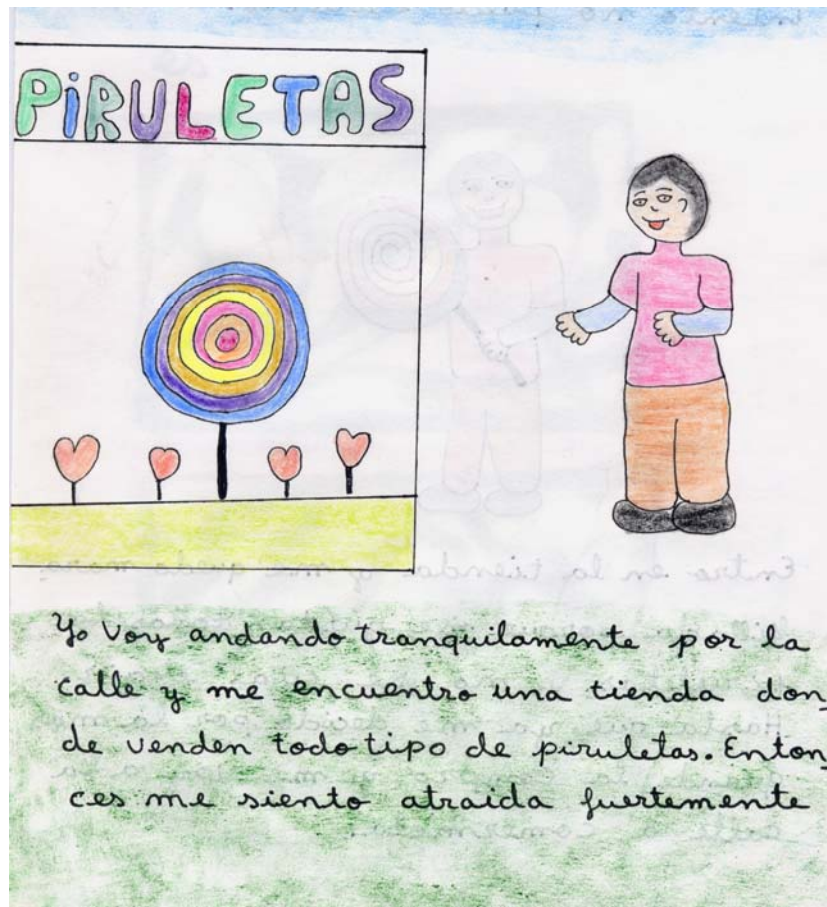 PiRULETAS
Yo voy andando tranquilamente por la
calle y me encuentro una tienda don_
de venden todo tipo de piruletas. Enton_
ces me siento atraida fuertemente